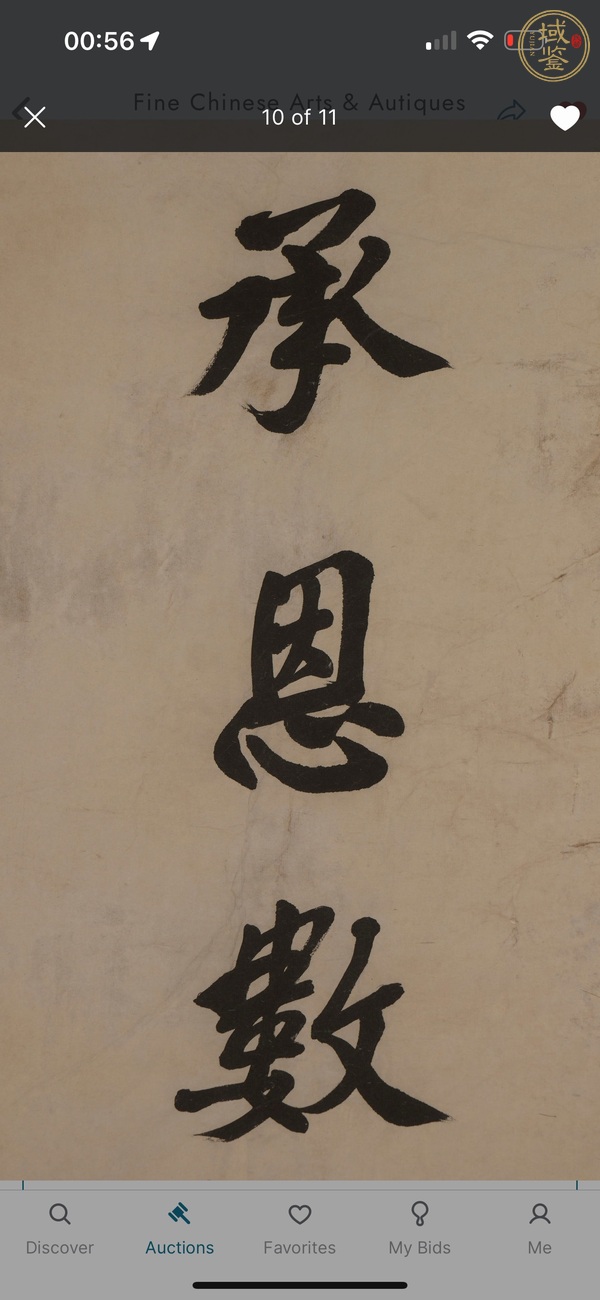 00:56
域鉴
Fine Chinese Arts & Autiques
10 of 11
承
恩
數
Discover
Auctions
Favorites
My Bids
Me